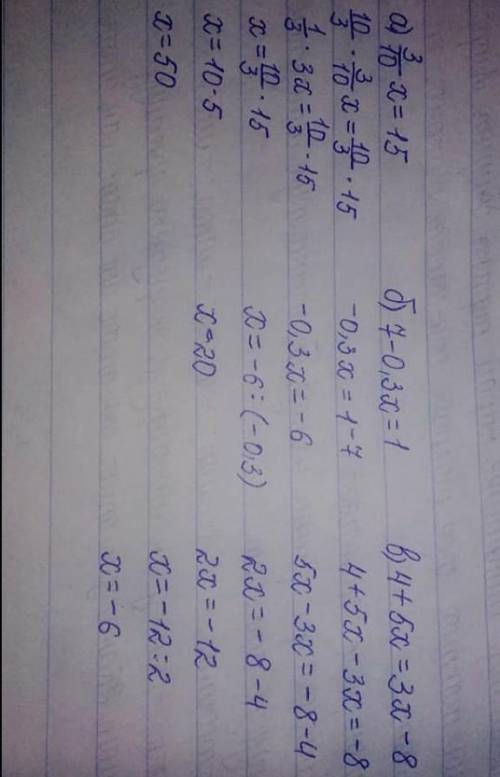 а) 3/10 x = 15
10/3 · 3/10 x = 10/3 · 15
1/3 · 3x = 10/3 · 15
x = 10/3 · 15
x = 10 · 5
x = 50
б) 7 - 0,3x = 1
-0,3x = 1 - 7
-0,3x = -6
x = -6 : (-0,3)
x = 20
в) 4 + 5x = 3x - 8
4 + 5x - 3x = -8
5x - 3x = -8 - 4
2x = -8 - 4
2x = -12
x = -12 : 2
x = -6